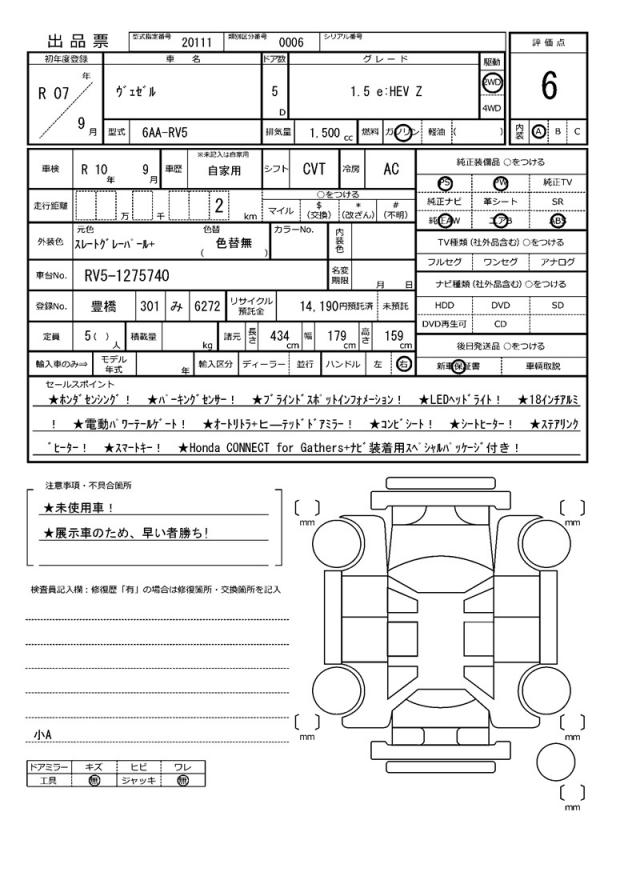 出品票 型式指定番号 20111 類別区分番号 0006 シリアル番号
初年度登録 車名 ドア数 グレード 駆動 評価点
R 07 年 9 月 ヴェゼル 5 D 1.5 e:HEV Z 2WD 4WD 6
型式 6AA-RV5 排気量 1.500 cc 燃料 ガソリン 軽油 ( ) 内装 A B C
車検 R 10 年 9 月 車歴 ※未記入は自家用 自家用 シフト CVT 冷房 AC 純正装備品 ○をつける
PS PW 純正TV
走行距離 万 千 2 km ○をつける マイル $ (交換) * (改ざん) # (不明) 純正ナビ 革シート SR
純正AW エアB ABS
外装色 元色 スレートグレーパール+ 色替 ( 色替無 ) カラーNo. 内装色 TV種類 (社外品含む) ○をつける
フルセグ ワンセグ アナログ
車台No. RV5-1275740 名変期限 月 日 ナビ種類 (社外品含む) ○をつける
登録No. 豊橋 301 み 6272 リサイクル預託金 14,190円預託済 未預託 HDD DVD SD
DVD再生可 CD
定員 5 ( ) 人 積載量 kg 諸元 長さ 434 cm 幅 179 cm 高さ 159 cm 後日発送品 ○をつける
輸入車のみ⇒ モデル年式 年 輸入区分 ディーラー 並行 ハンドル 左 右 新車保証書 車輌取説
セールスポイント
★ホンダセンシング! ★パーキングセンサー! ★ブラインドスポットインフォメーション! ★LEDヘッドライト! ★18インチアルミ
! ★電動パワーテールゲート! ★オートリトラ+ヒーテッドドアミラー! ★コンビシート! ★シートヒーター! ★ステアリング
ヒーター! ★スマートキー! ★Honda CONNECT for Gathers+ナビ装着用スペシャルパッケージ付き!
注意事項・不具合箇所
★未使用車!
★展示車のため、早い者勝ち!
検査員記入欄:修復歴「有」の場合は修復箇所・交換箇所を記入
小A
ドアミラー キズ ヒビ ワレ
工具 無 ジャッキ 無
[ ] mm [ ] mm
[ ] mm [ ] mm
[ ] mm